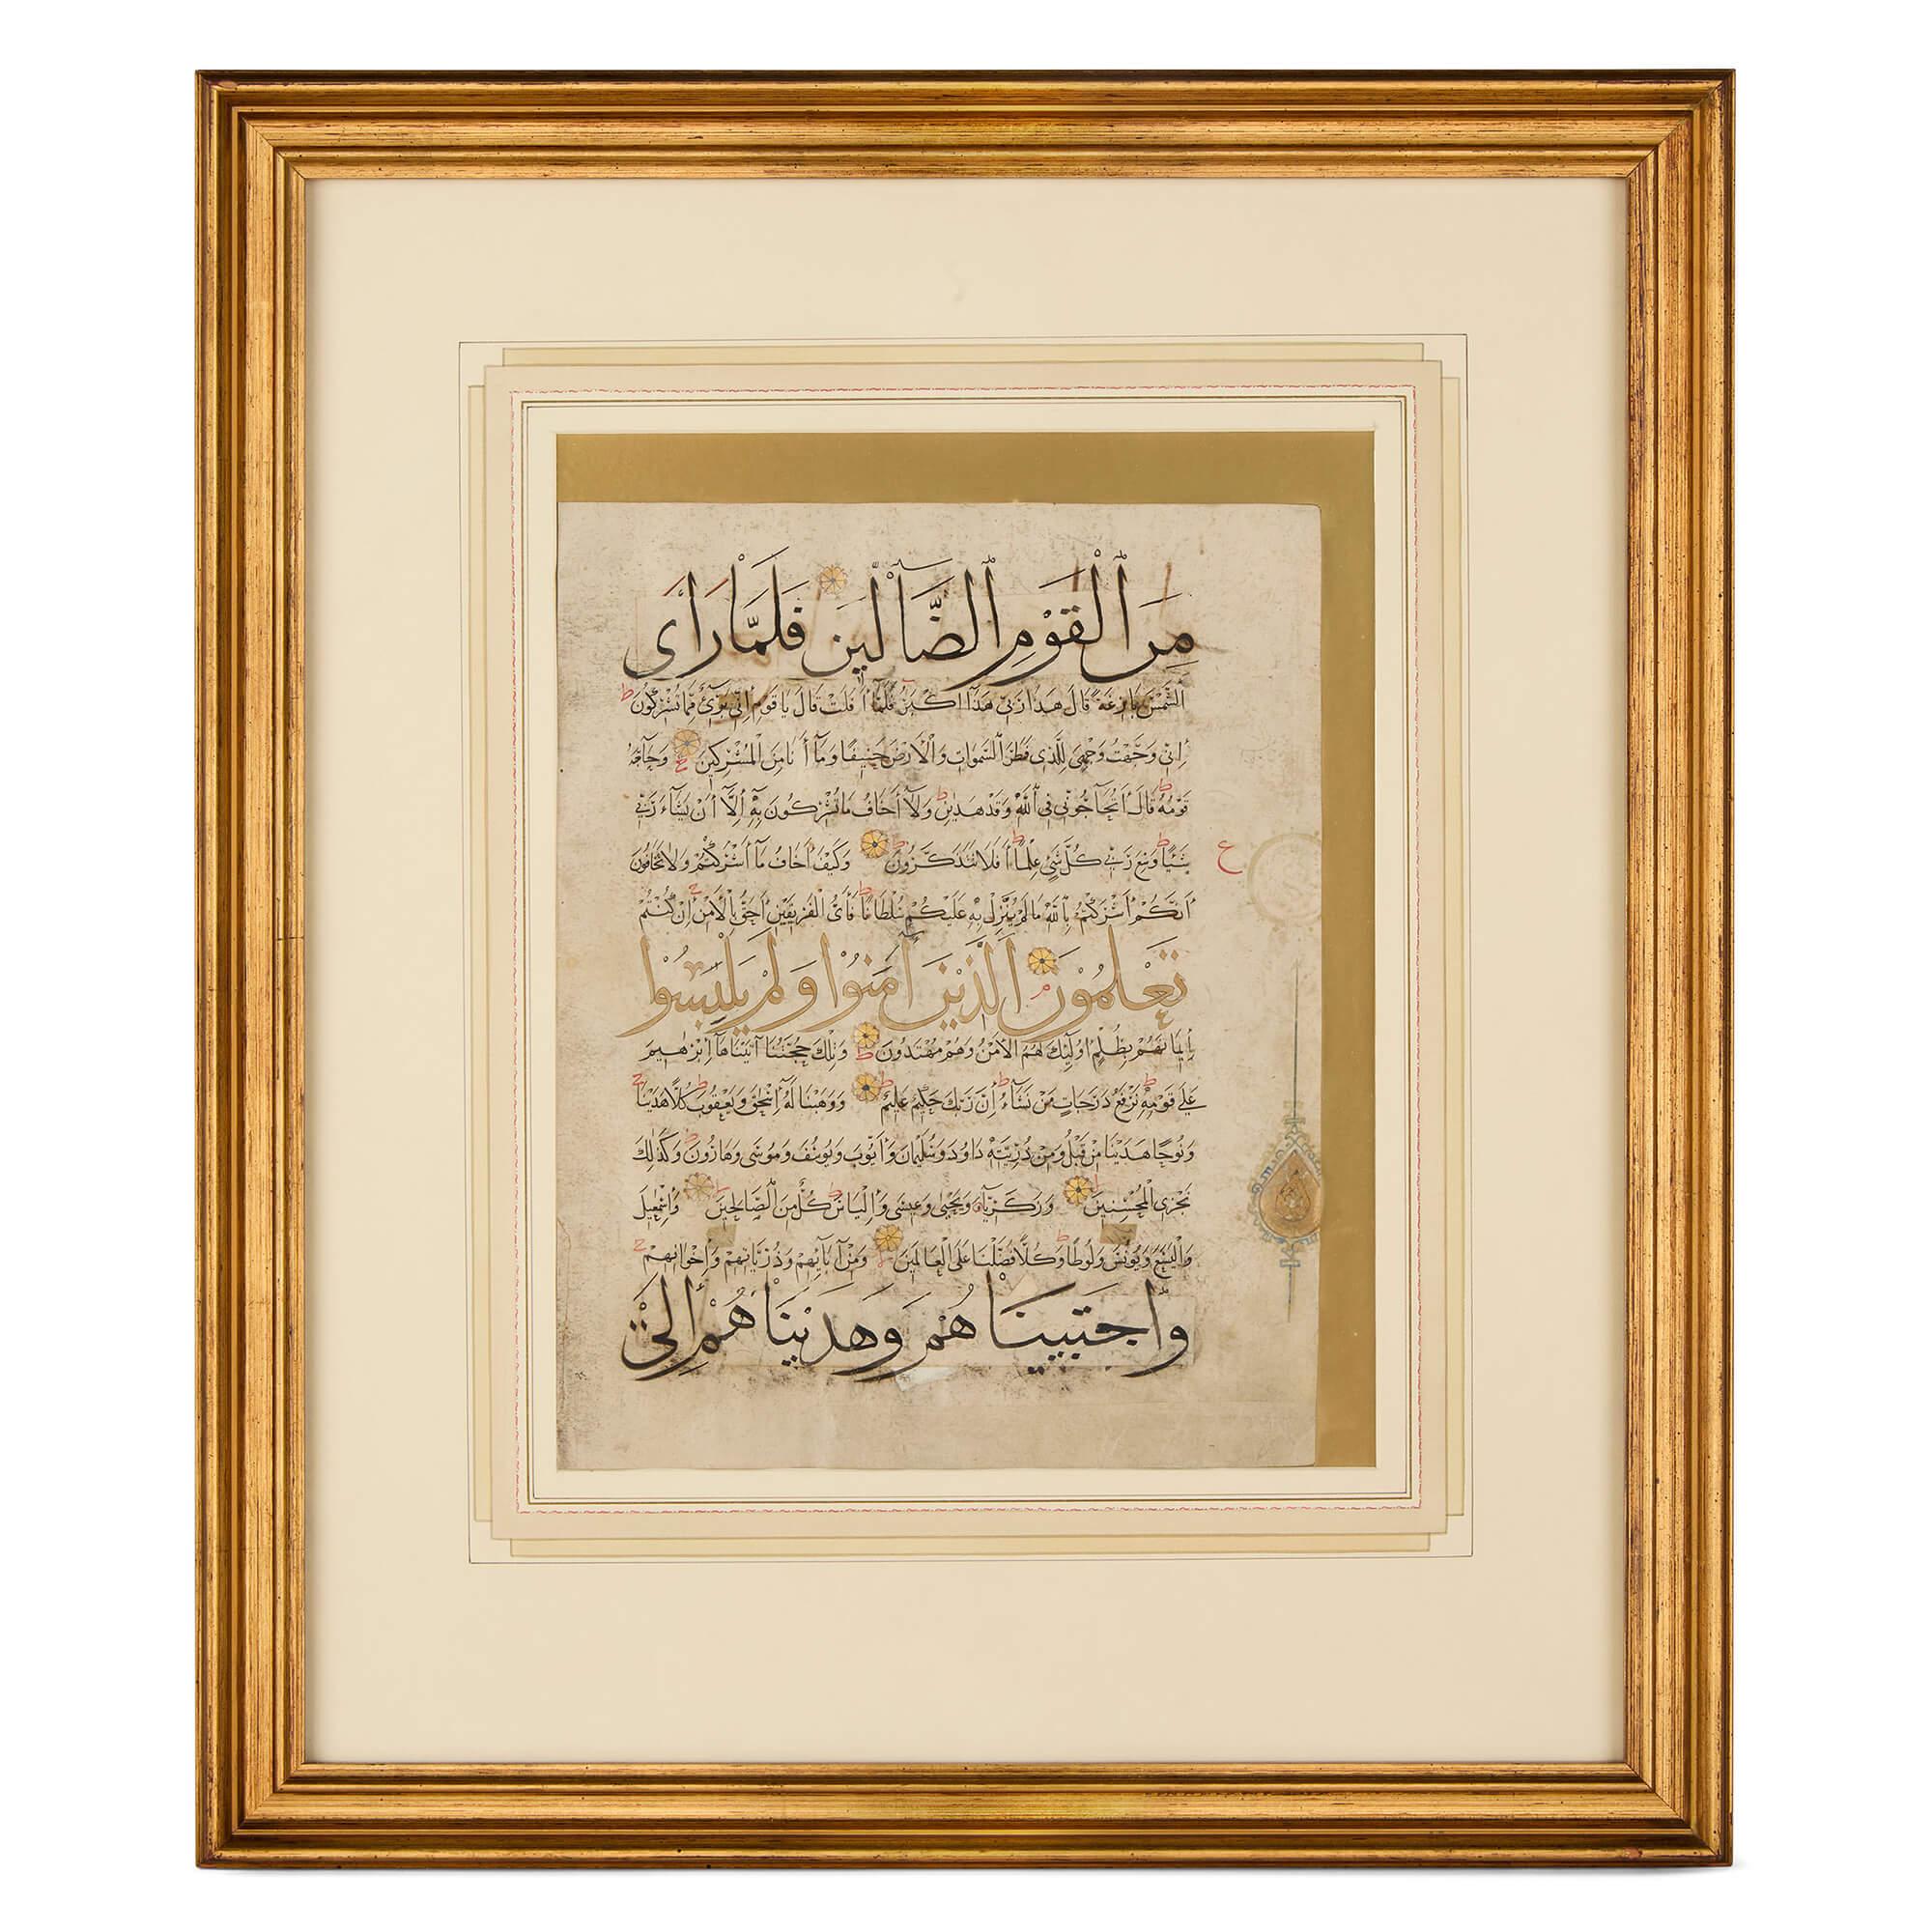 مِنَ ٱلْقَوْمِ ٱلضَّآلِّينَ فَلَمَّا رَأَى
ٱلشَّمْسَ بَازِغَةً قَالَ هَذَا رَبِّي هَذَآ اَكْبَرُ فَلَمَّآ أَفَلَتْ قَالَ يَا قَوْمِ إِنِّي بَرِيٓءٌ مِمَّا تُشْرِكُونَ ط
إِنِّي وَجَّهْتُ وَجْهِيَ لِلَّذِي فَطَرَ ٱلسَّمَوَاتِ وَٱلْأَرْضَ حَنِيفًا وَمَآ أَنَا مِنَ ٱلْمُشْرِكِينَ وَحَآجَّهُ
قَوْمُهُ ط قَالَ أَتُحَآجُّونِّي فِي ٱللَّهِ وَقَدْ هَدَينِ ط وَلَآ أَخَافُ مَا تُشْرِكُونَ بِهِٓ إِلَّآ أَنْ يَشَآءَ رَبِّي
شَيْئًا ط وَسِعَ رَبِّي كُلَّ شَيْءٍ عِلْمًا ط أَفَلَا تَتَذَكَّرُونَ وَكَيْفَ أَخَافُ مَآ أَشْرَكْتُمْ وَلَا تَخَافُونَ
ع
أَنَّكُمْ أَشْرَكْتُمْ بِٱللَّهِ مَا لَمْ يُنَزِّلْ بِهِ عَلَيْكُمْ سُلْطَانًا ط فَأَيُّ ٱلْفَرِيقَيْنِ أَحَقُّ بِٱلْأَمْنِ ج إِنْ كُنْتُمْ
تَعْلَمُونَ م اَلَّذِينَ آمَنُوْا وَلَمْ يَلْبِسُوْا
إِيمَانَهُمْ بِظُلْمٍ أُولَٓئِكَ لَهُمُ ٱلْأَمْنُ وَهُمْ مُهْتَدُونَ ط وَتِلْكَ حُجَّتُنَآ آتَيْنَاهَآ إِبْرَهِيمَ
عَلَى قَوْمِهِ ط نَرْفَعُ دَرَجَاتٍ مَنْ نَشَآءُ ط إِنَّ رَبَّكَ حَكِيمٌ عَلِيمٌ ط وَوَهَبْنَا لَهُٓ إِسْحَقَ وَيَعْقُوبَ ط كُلًّا هَدَيْنَا ج
وَنُوحًا هَدَيْنَا مِنْ قَبْلُ وَمِنْ ذُرِّيَّتِهِ دَاوُدَ وَسُلَيْمَانَ وَأَيُّوبَ وَيُوسُفَ وَمُوسَى وَهَارُونَ ط وَكَذَلِكَ
نَجْزِي ٱلْمُحْسِنِينَ وَزَكَرِيَّآءَ وَيَحْيَى وَعِيسَى وَإِلْيَاسَ ط كُلٌّ مِنَ ٱلصَّالِحِينَ وَإِسْمَعِيلَ
وَٱلْيَسَعَ وَيُونُسَ وَلُوطًا ط وَكُلًّا فَضَّلْنَا عَلَى ٱلْعَالَمِينَ وَمِنْ آبَآئِهِمْ وَذُرِّيَّاتِهِمْ وَإِخْوَانِهِمْ ج
وَٱجْتَبَيْنَاهُمْ وَهَدَيْنَاهُمْ إِلَى